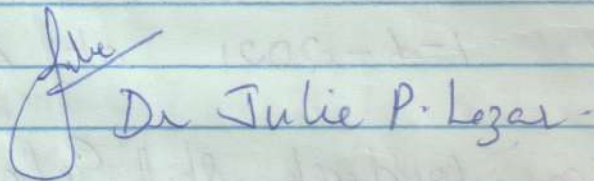 Julie
Dr Julie P. Lezar.